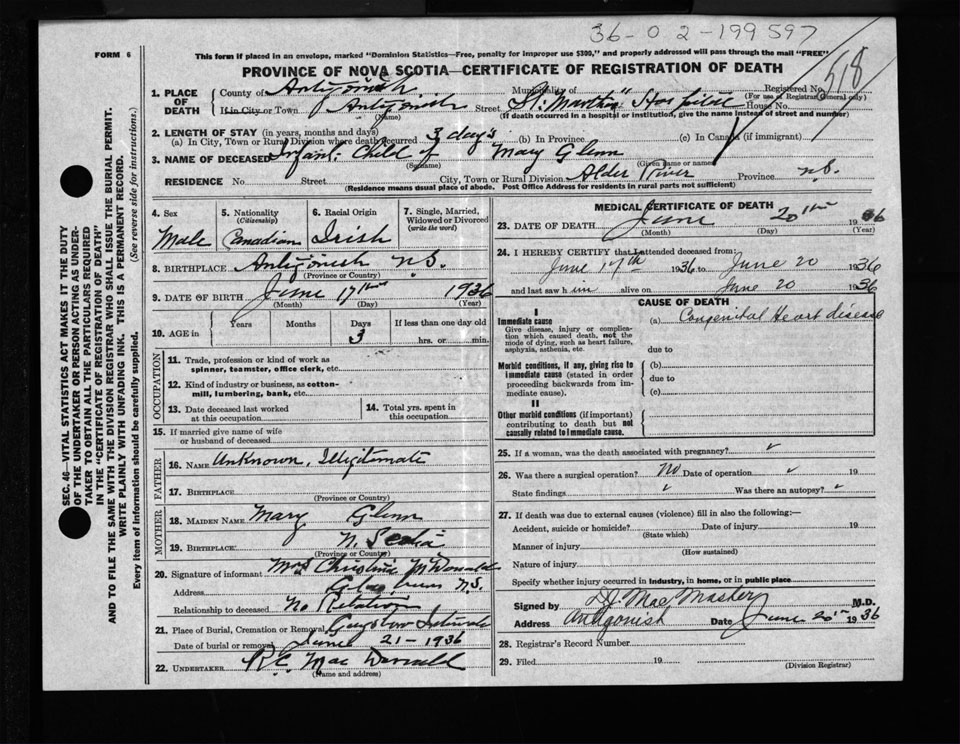 36-02-199597
518
FORM 6
This form if placed in an envelope, marked "Dominion Statistics—Free, penalty for improper use $300," and properly addressed will pass through the mail "FREE"
PROVINCE OF NOVA SCOTIA—CERTIFICATE OF REGISTRATION OF DEATH
1. PLACE OF DEATH
County of Antigonish Municipality of Registered No.
(For use of Registrar General only)
If in City or Town Antigonish Street St. Martha's Hospital House No.
(Name) (If death occurred in a hospital or institution, give the name instead of street and number)
2. LENGTH OF STAY (in years, months and days)
(a) In City, Town or Rural Division where death occurred 3 days (b) In Province (c) In Canada (if immigrant)
3. NAME OF DECEASED Infant Child of Mary Glenn
(Surname) (Given name or names)
RESIDENCE No. Street City, Town or Rural Division Alder River Province N.S.
(Residence means usual place of abode. Post Office Address for residents in rural parts not sufficient)
4. Sex
Male
5. Nationality (Citizenship)
Canadian
6. Racial Origin
Irish
7. Single, Married, Widowed or Divorced (write the word)
8. BIRTHPLACE Antigonish N.S.
(Province or Country)
9. DATE OF BIRTH June 17th 1936
(Month) (Day) (Year)
10. AGE in Years Months Days If less than one day old
3 hrs. or min.
OCCUPATION
11. Trade, profession or kind of work as spinner, teamster, office clerk, etc.
12. Kind of industry or business, as cotton-mill, lumbering, bank, etc.
13. Date deceased last worked at this occupation
14. Total yrs. spent in this occupation
15. If married give name of wife or husband of deceased
FATHER
16. NAME Unknown, Illegitimate
17. BIRTHPLACE
(Province or Country)
MOTHER
18. MAIDEN NAME Mary Glenn
19. BIRTHPLACE N. Scotia
(Province or Country)
20. Signature of informant Mrs Christine McDonald
Address N.S.
Relationship to deceased No Relation
21. Place of Burial, Cremation or Removal
Date of burial or removal June 21-1936
22. UNDERTAKER R.C. MacDonald
(Name and address)
MEDICAL CERTIFICATE OF DEATH
23. DATE OF DEATH June 20th 1936
(Month) (Day) (Year)
24. I HEREBY CERTIFY that I attended deceased from:
June 17th 1936 to June 20 1936
and last saw him alive on June 20 1936
CAUSE OF DEATH
I
Immediate cause (a) Congenital Heart disease
Give disease, injury or complication which caused death, not the mode of dying, such as heart failure, asphyxia, asthenia, etc.
due to
Morbid conditions, if any, giving rise to immediate cause (stated in order proceeding backwards from immediate cause).
(b)
due to
(c)
II
Other morbid conditions (if important) contributing to death but not causally related to immediate cause.
25. If a woman, was the death associated with pregnancy?
26. Was there a surgical operation? No Date of operation 19
State findings Was there an autopsy?
27. If death was due to external causes (violence) fill in also the following:—
Accident, suicide or homicide? Date of injury 19
(State which)
Manner of injury
(How sustained)
Nature of injury
Specify whether injury occurred in industry, in home, or in public place
Signed by MacMaster M.D.
Address Antigonish Date June 20th 1936
28. Registrar's Record Number
29. Filed 19
(Division Registrar)
SEC. 46—VITAL STATISTICS ACT MAKES IT THE DUTY
OF THE UNDERTAKER OR PERSON ACTING AS UNDER-
TAKER TO OBTAIN ALL THE PARTICULARS REQUIRED
IN THE "CERTIFICATE OF REGISTRATION OF DEATH"
AND TO FILE THE SAME WITH THE DIVISION REGISTRAR WHO SHALL ISSUE THE BURIAL PERMIT.
WRITE PLAINLY WITH UNFADING INK. THIS IS A PERMANENT RECORD.
Every item of information should be carefully supplied. (See reverse side for instructions.)